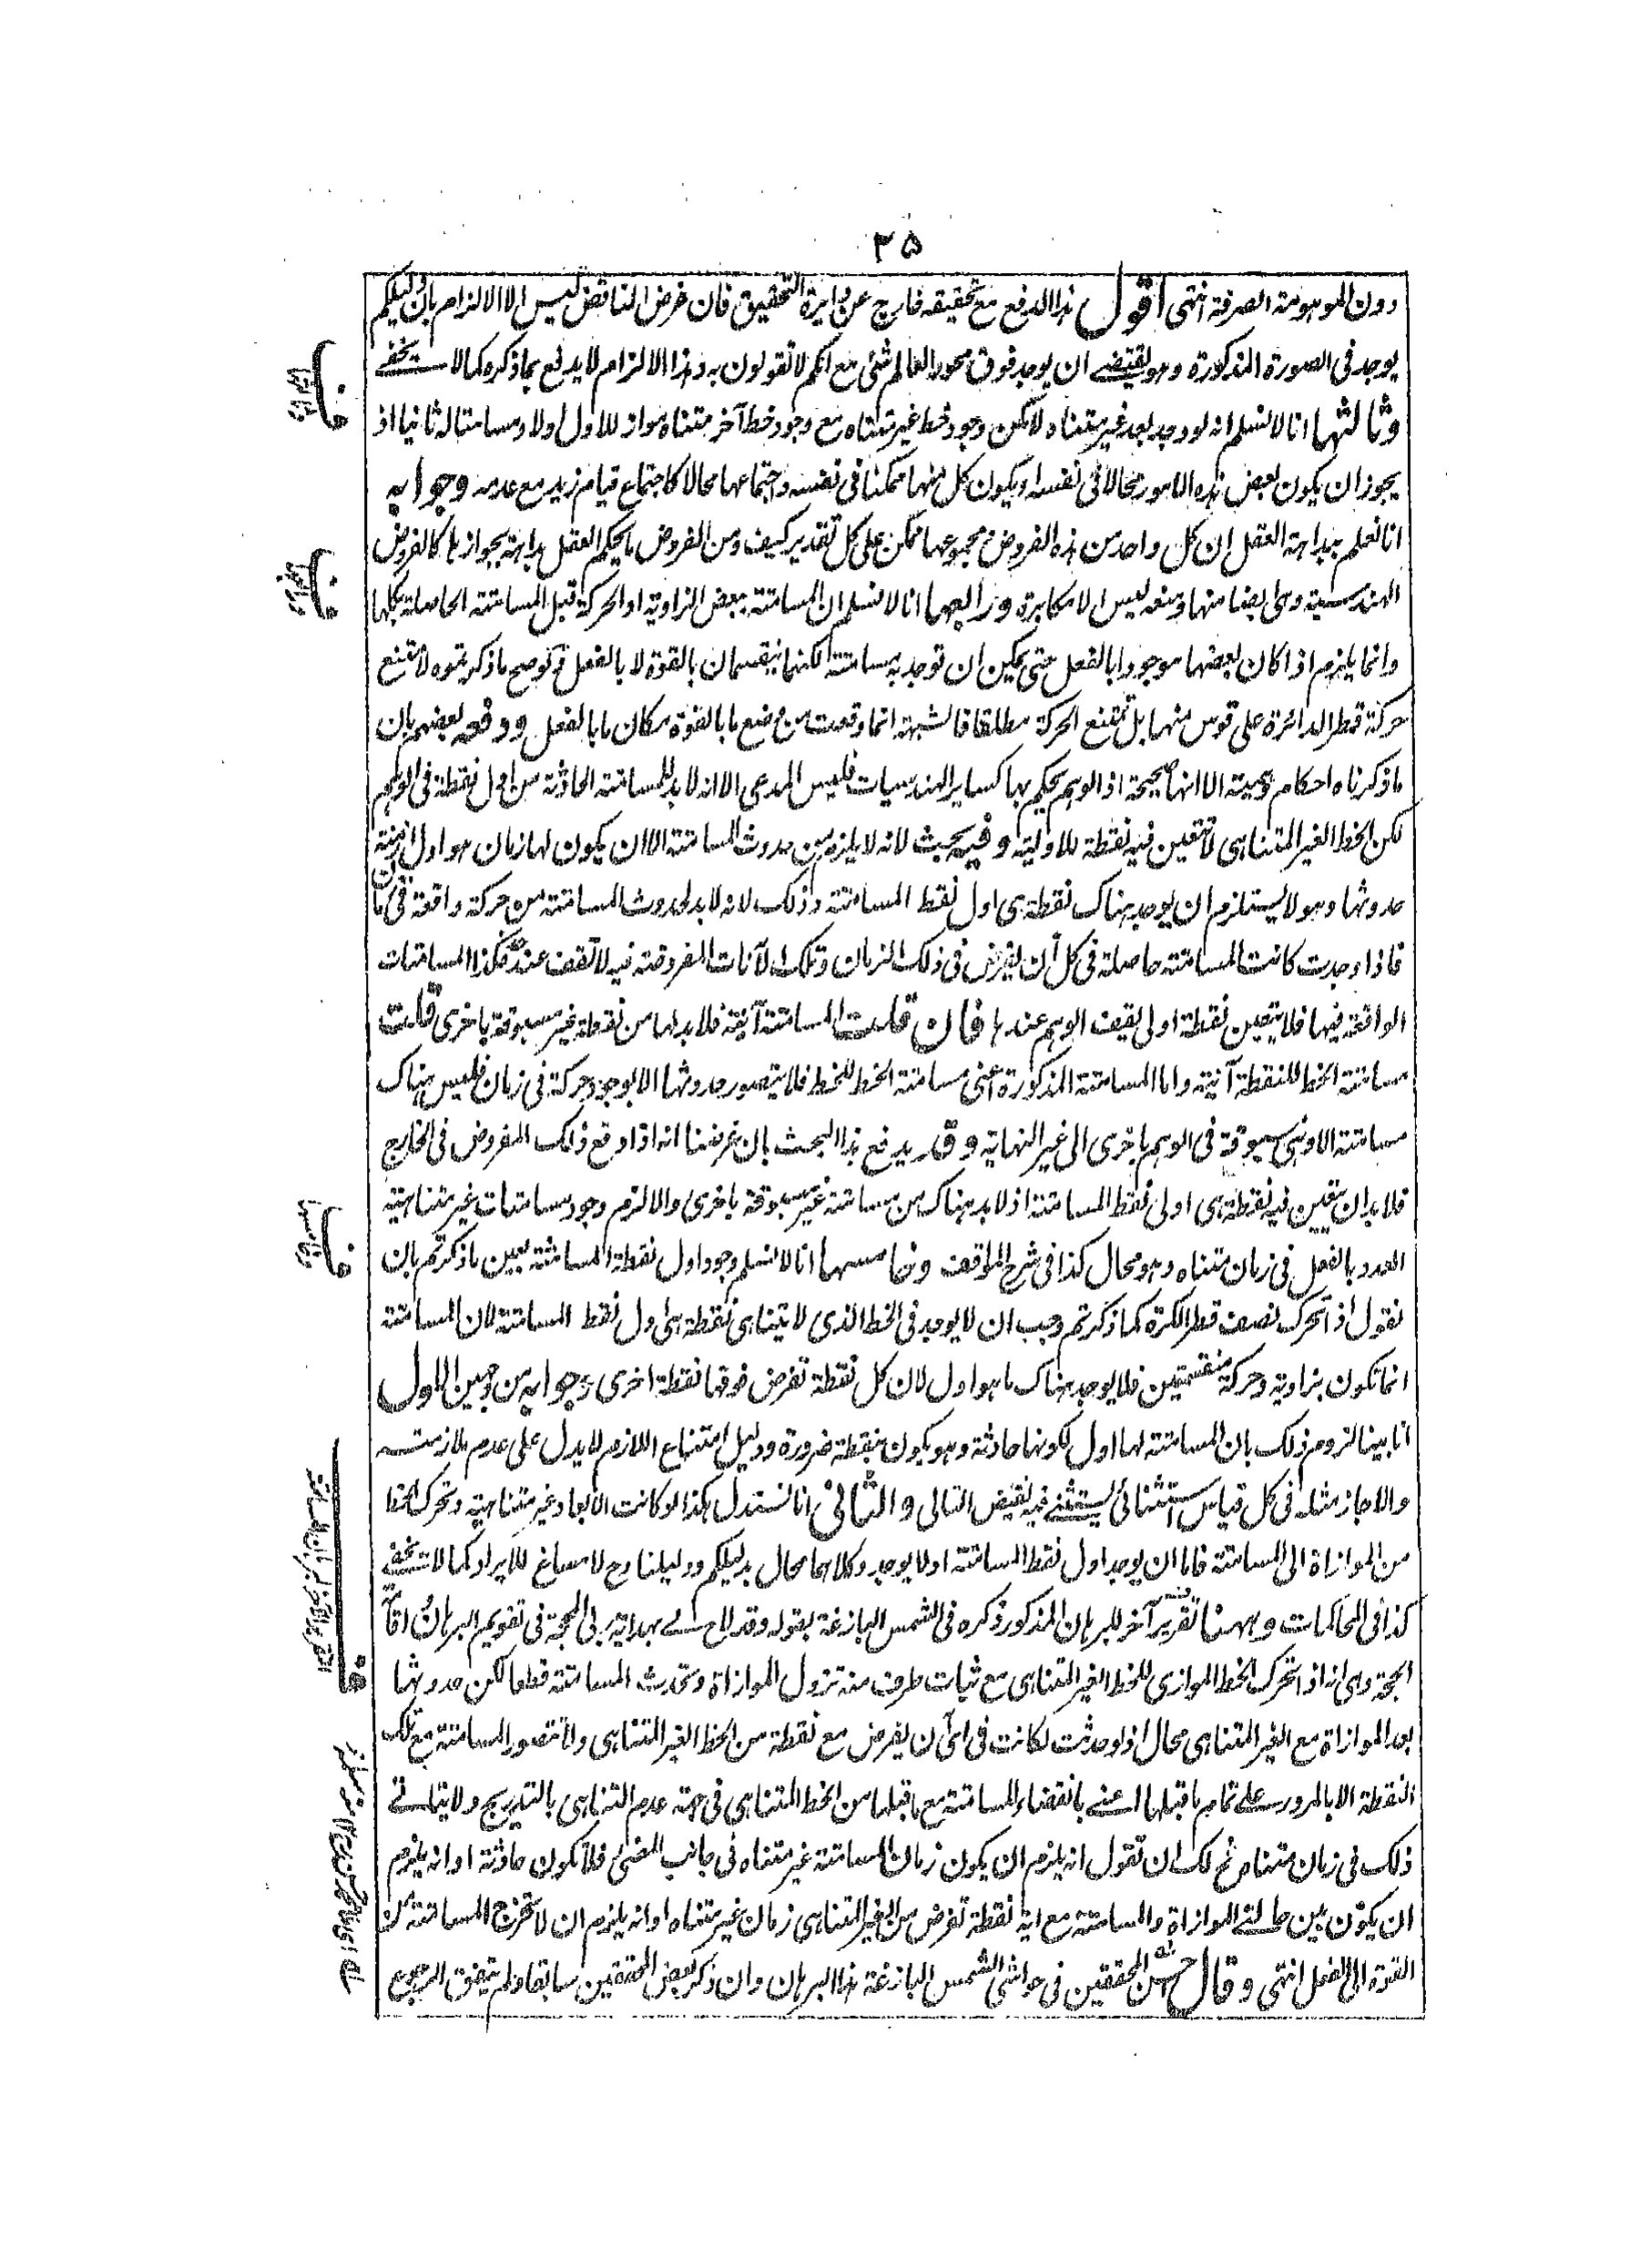 ٣٥
دون الموهومة الصرفة انتهى اقول هذا الدفع مع تحقيقه خارج عن دايرة التحقيق فان غرض الناقض ليس الا الالزام بان دليلكم
يوجد فى الصورة المذكورة وهو يقتضى ان يوجد فوق محور العالم شئ مع انكم لا تقولون به وهذا الالزام لا يدفع بما ذكره كما لا يخفى
وثالثها انا لا نسلم انه لو وجد بعد غير متناه لامكن وجود خط غير متناه مع وجود خط آخر متناه مواز للاول اولا ومسامتا له ثانيا اذ
يجوز ان يكون بعض هذه الامور محالا فى نفسه او يكون كل منها ممكنا فى نفسه واجتماعها محالا كاجتماع قيام زيد مع عدمه وجوابه
انا نعلم ببداهة العقل ان كل واحد من هذه الفروض ومجموعها ممكن على كل تقدير كيف ومن الفروض ما يحكم العقل بداهة بجوازها كالفروض
الهندسية وهى ايضا منها ومنعه ليس الا مكابرة ورابعها انا لا نسلم ان المسامتة ببعض الزاوية او الحركة قبل المسامتة الحاصلة بكلها
وانما يلزم اذا كان بعضها موجودا بالفعل حتى يمكن ان توجد به مسامتة لكنهما ينقسمان بالقوة لا بالفعل ولو صح ما ذكرتموه لامتنع
حركة قطر الدائرة على قوس منها بل تمتنع الحركة مطلقا فالشبهة انما وقعت من وضع ما بالقوة مكان ما بالفعل ودفعه بعضهم بان
ما ذكرناه احكام وهمية الا انها صحيحة اذ الوهم يحكم بها كساير الهندسيات فليس المدعى الا انه لا بد للمسامتة الحادثة من اول نقطة فى الوهم
لكن الخط الغير المتناهى لا تتعين فيه نقطة للاولية وفيه بحث لانه لا يلزم من حدوث المسامتة الا ان يكون لها زمان هو اول ازمنة
حدوثها وهو لا يستلزم ان يوجد هناك نقطة هى اول نقط المسامتة وذلك لانه لا بد لحدوث المسامتة من حركة واقعة فى زمان
فاذا وجدت كانت المسامتة حاصلة فى كل آن يفرض فى ذلك الزمان وتلك الآنات المفروضة فيه لا تقف عند حد فكذا المسامتات
الواقعة فيها فلا يتعين نقطة اولى يقف الوهم عندها فان قلت المسامتة آنية فلا بد لها من نقطة غير مسبوقة باخرى قلت
مسامتة الخط للنقطة آنية واما المسامتة المذكورة اعنى مسامتة الخط للخط فلا يتصور حدوثها الا بوجود حركة فى زمان فليس هناك
مسامتة الا وهى مسبوقة فى الوهم باخرى الى غير النهاية وقد يدفع هذا البحث بان غرضنا انه اذا وقع ذلك المفروض فى الخارج
فلا بد ان يتعين فيه نقطة هى اولى نقط المسامتة اذ لا بد هناك من مسامتة غير مسبوقة باخرى والا لزم وجود مسامتات غير متناهية
العدد بالفعل فى زمان متناه وهو محال كذا فى شرح المواقف وخامسها انا لا نسلم وجود اول نقطة المسامتة بعين ما ذكرتم بان
نقول اذا تحرك نصف قطر الكرة كما ذكرتم وجب ان لا يوجد فى الخط الذى لا يتناهى نقطة هى اول نقط المسامتة لان المسامتة
انما تكون بزاوية وحركة منقسمتين فلا يوجد هناك ما هو اول لان كل نقطة تفرض فوقها نقطة اخرى وجوابه من وجهين الاول
انا بينا لزوم ذلك بان المسامتة لها اول لكونها حادثة وهو يكون بنقطة ضرورة ودليل امتناع اللازم لا يدل على عدم ملازمته
والا جاز مثله فى كل قياس استثنائى يستثنى فيه نقيض التالى والثانى انا نستدل هكذا لو كانت الابعاد غير متناهية وتحرك الخط
من الموازاة الى المسامتة فاما ان يوجد اول نقط المسامتة او لا يوجد وكلاهما محال بدليلكم ودليلنا وح لا مساغ للايراد كما لا يخفى
كذا فى المحاكمات وههنا تقرير آخر للبرهان المذكور ذكره فى الشمس البازغة بقوله وقد لاح لى بهداية ربى الحجة فى تقويم البرهان اقامة
الحجة وهى انه اذا تحرك الخط الموازى للخط الغير المتناهى مع ثبات طرف منه تزول الموازاة وتحدث المسامتة قطعا لكن حدوثها
بعد الموازاة مع الغير المتناهى محال اذ لو حدثت لكانت فى اى آن يفرض مع نقطة من الخط الغير المتناهى ولا تتصور المسامتة مع تلك
النقطة الا بالمرور على تمام ما قبلها اعنى بانقضاء المسامتة مع ما قبلها من الخط المتناهى فى جهة عدم التناهى بالتدريج ولا يتاتى
ذلك فى زمان متناه ثم لك ان تقول انه يلزم ان يكون زمان المسامتة غير متناه فى جانب المضى فلا تكون حادثة او انه يلزم
ان يكون بين حالتى الموازاة والمسامتة مع اية نقطة تفرض من الغير المتناهى زمان غير متناه او انه يلزم ان لا تخرج المسامتة من
القوة الى الفعل انتهى وقال احسن المحققين فى حواشى الشمس البازغة هذا البرهان وان ذكر بعض المحققين سابقا ولم يتفق الرجوع